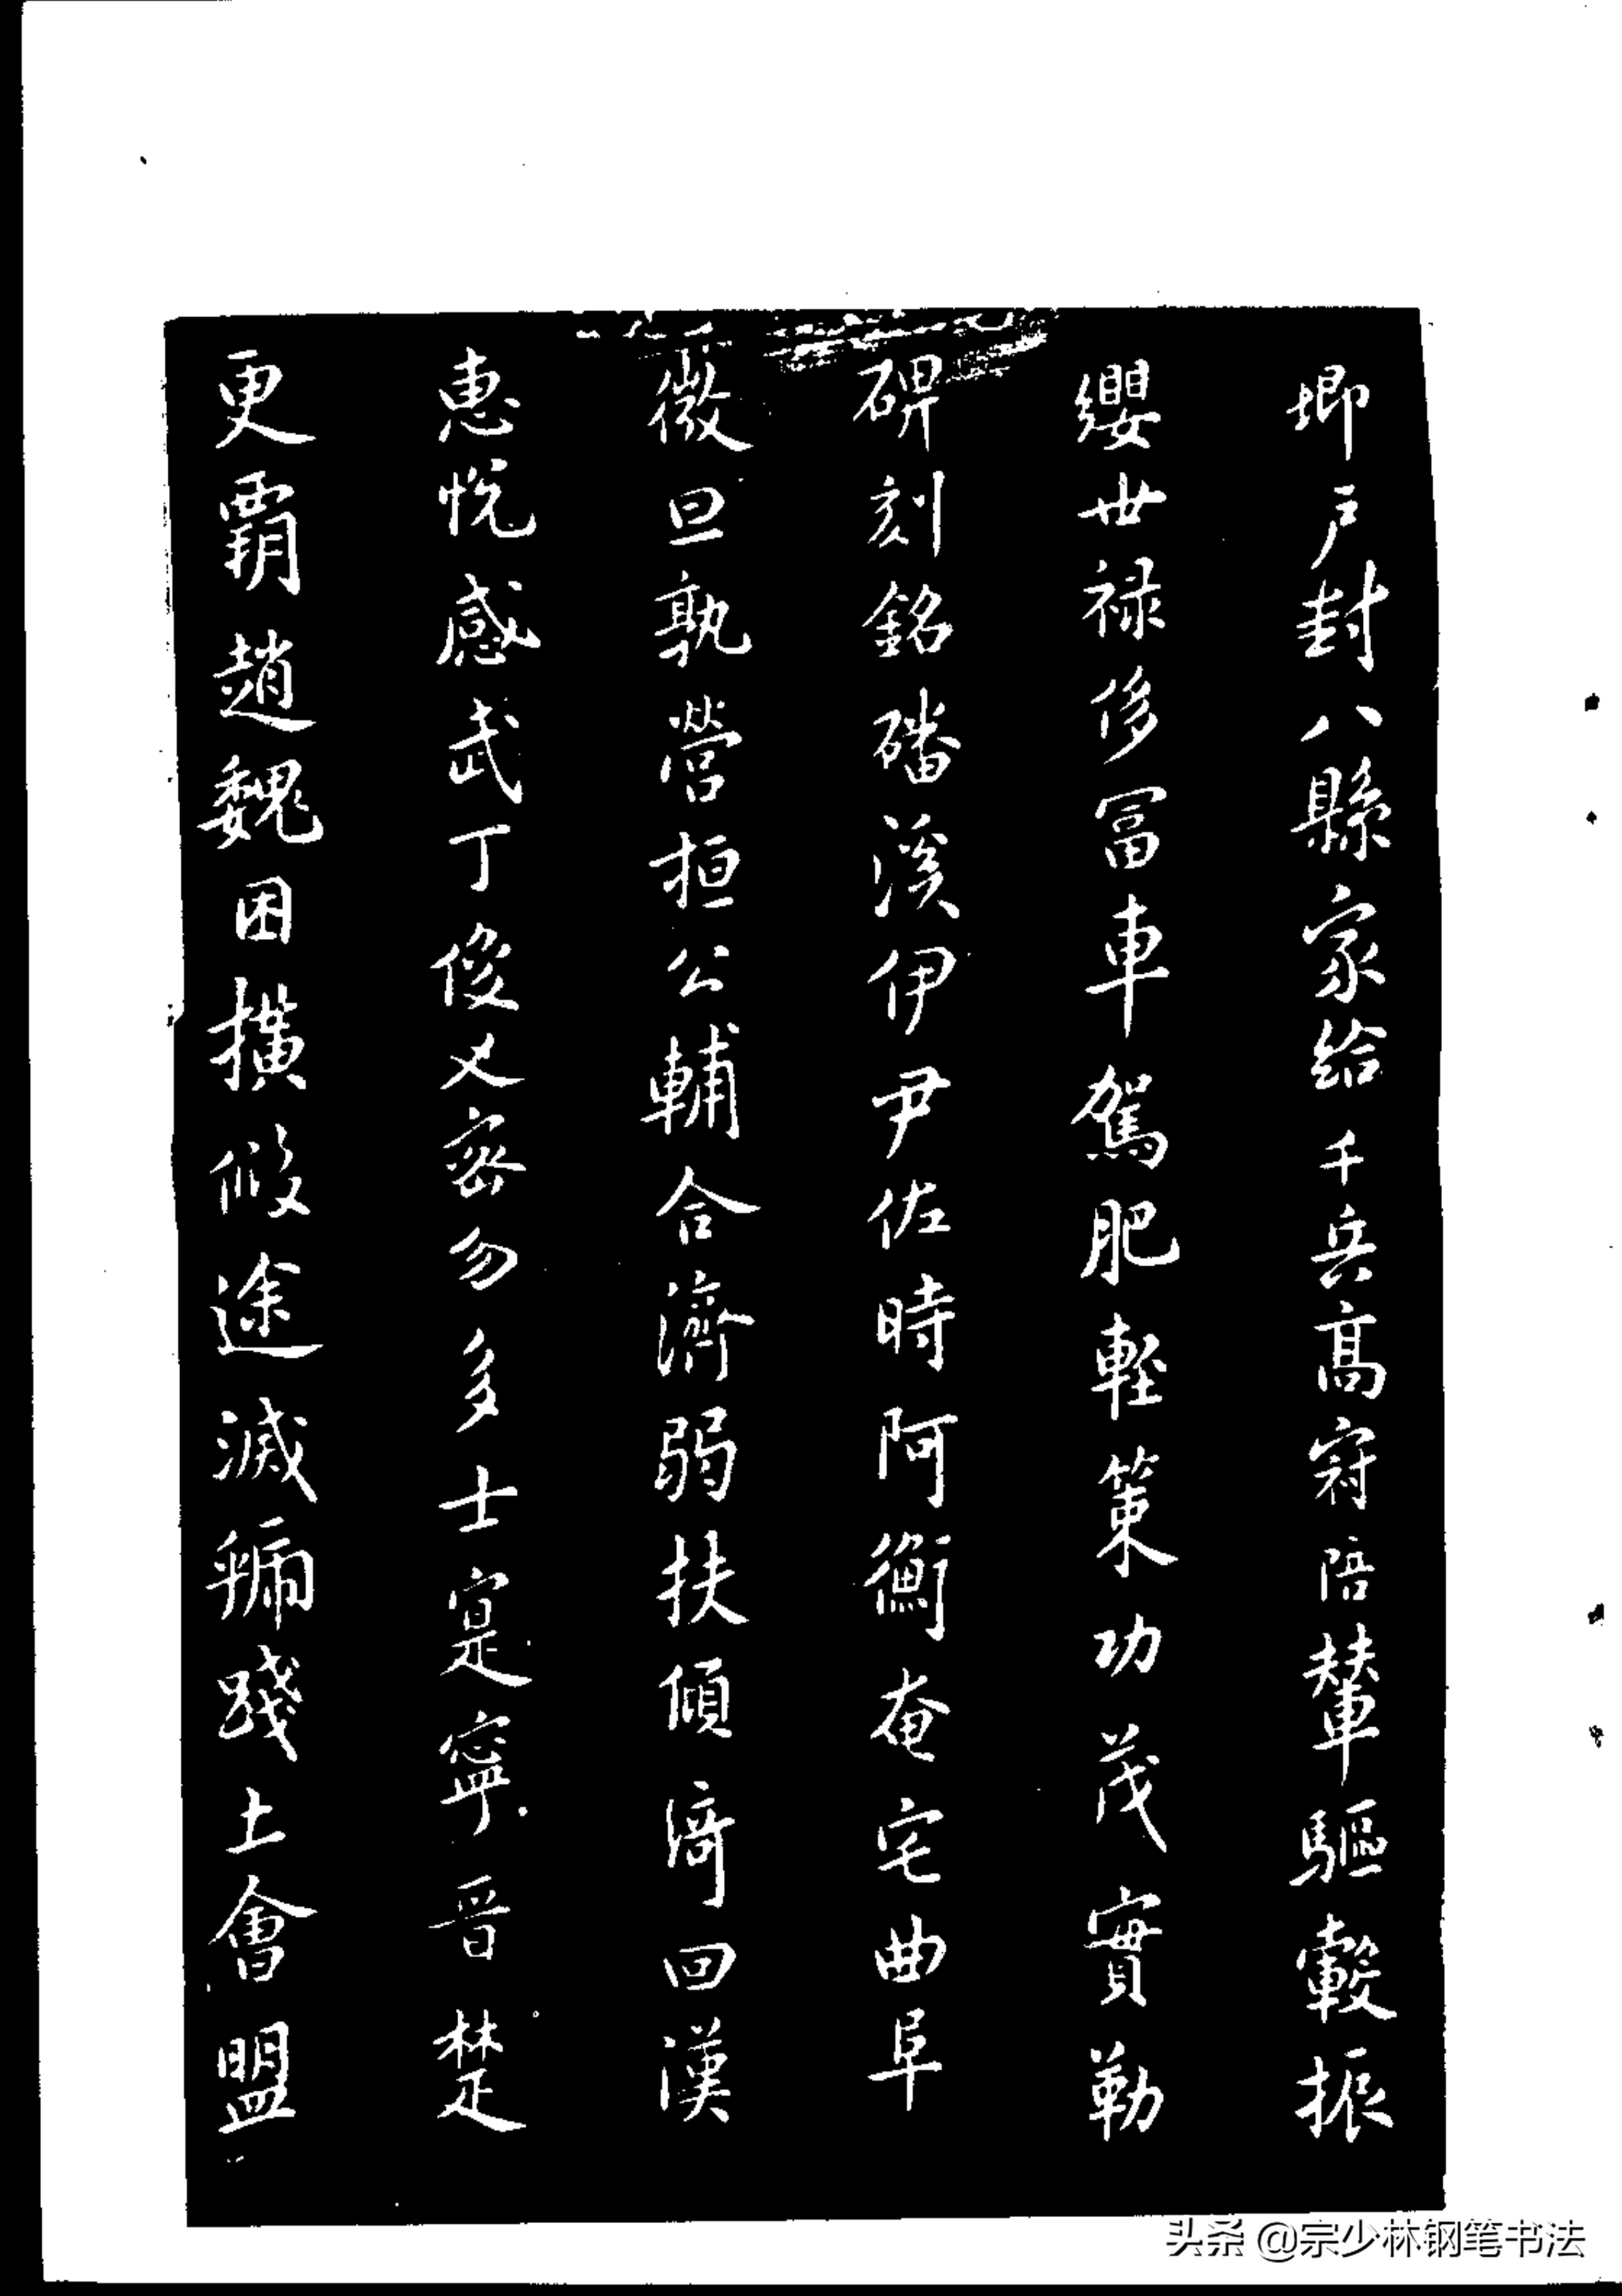 卿户封八縣家給千兵髙冠陪輦驅轂振
纓世禄侈冨車駕肥輕策功茂實勒
碑刻銘磻溪伊尹佐時阿衡奄宅曲阜
微旦孰營桓公輔合濟弱扶傾綺回漢
惠恱感武丁俊乂密勿多士寔寧晉楚
更霸趙魏困横假途滅虢踐土會盟
头条 @宗少林钢笔书法